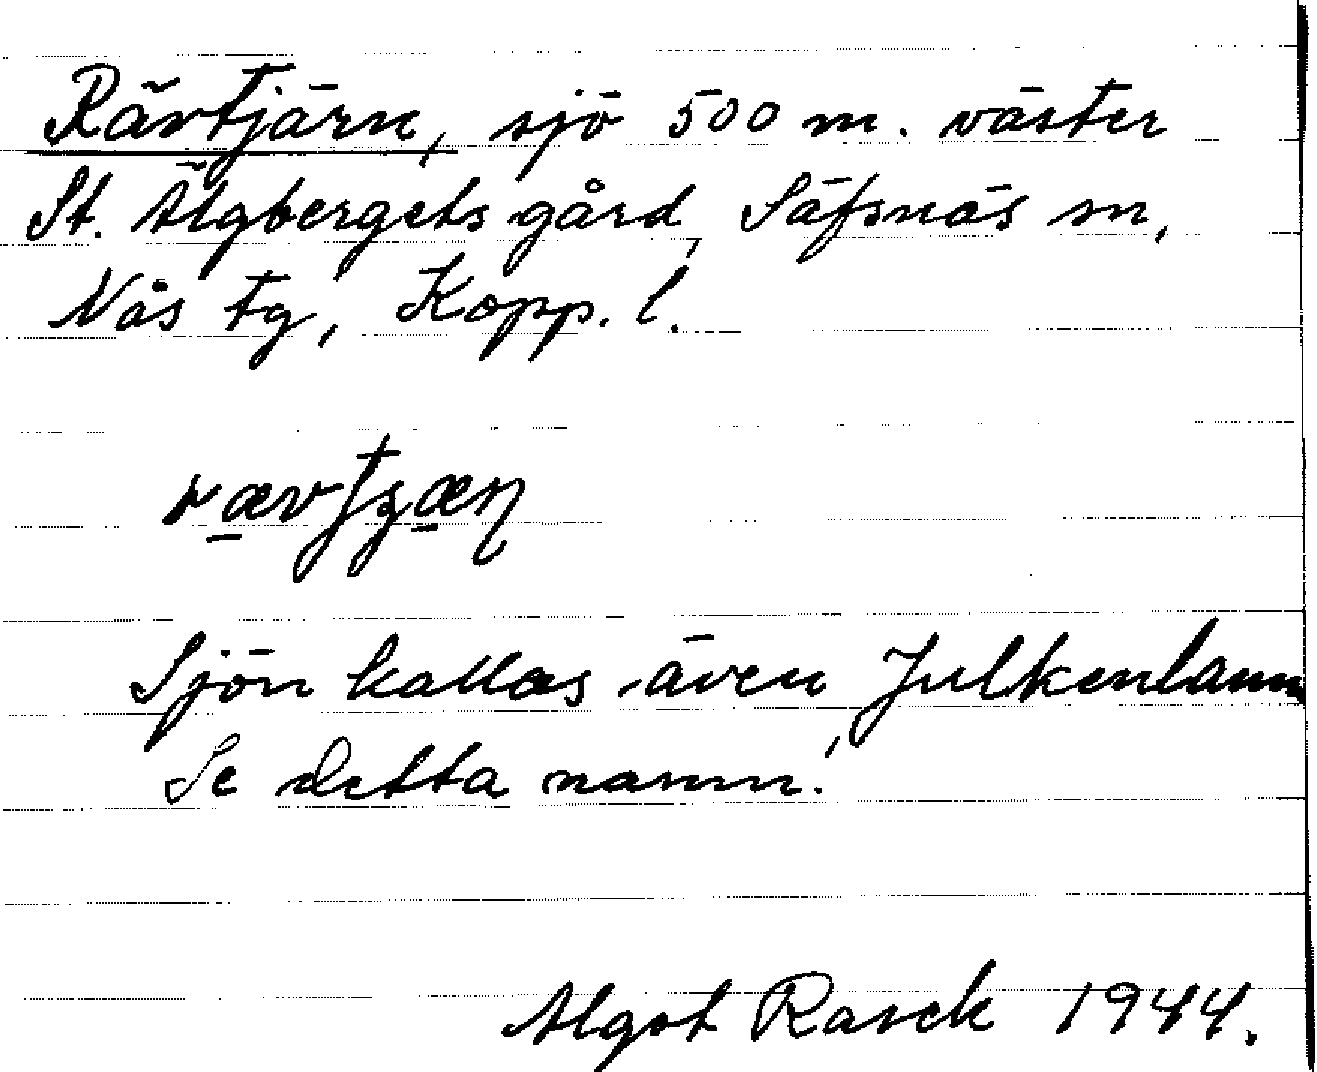 Rävtjärn, sjö 500 m. väster
St. Älgbergets gård, Säfsnäs sn,
Nås tg, Kopp. l.
rævtʃæɳ
Sjön kallas även Julkenlamm
Se detta namn.
Algot Rasck 1944.